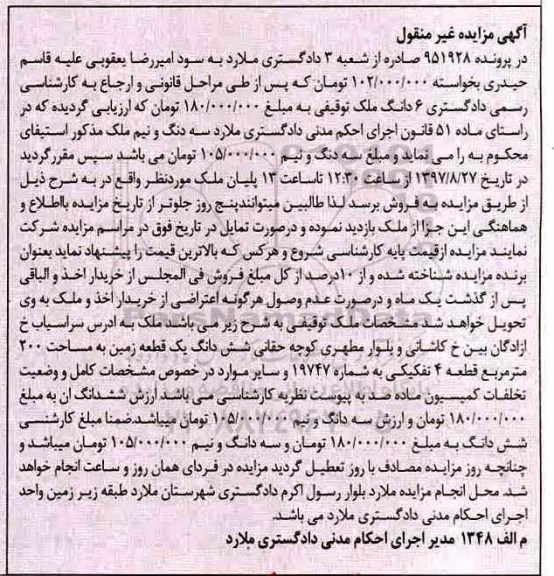 آگهی مزایده غیر منقول
در پرونده ۹۵۱۹۲۸ صادره از شعبه ۳ دادگستری ملارد به سود امیررضا یعقوبی علیه قاسم
حیدری بخواسته ۱۰۲/۰۰۰/۰۰۰ تومان که پس از طی مراحل قانونی و ارجاع به کارشناسی
رسمی دادگستری ۶ دانگ ملک توقیفی به مبلغ ۱۸۰/۰۰۰/۰۰۰ تومان که ارزیابی گردیده که در
راستای ماده ۵۱ قانون اجرای احکم مدنی دادگستری ملارد سه دنگ و نیم ملک مذکور استیفای
محکوم به را می نماید و مبلغ سه دنگ و نیم ۱۰۵/۰۰۰/۰۰۰ تومان می باشد سپس مقرر گردید
در تاریخ ۱۳۹۷/۸/۲۷ از ساعت ۱۲:۳۰ تا ساعت ۱۳ پلیان ملک موردنظر واقع در به شرح ذیل
از طریق مزایده به فروش برسد لذا طالبین میتوانند پنج روز جلوتر از تاریخ مزایده بااطلاع و
هماهنگی این جزا از ملک بازدید نموده و درصورت تمایل در تاریخ فوق در مراسم مزایده شرکت
نمایند مزایده ازقیمت پایه کارشناسی شروع و هرکس که بالاترین قیمت را پیشنهاد نماید بعنوان
برنده مزایده شناخته شده و از ۱۰درصد از کل مبلغ فروش فی المجلس از خریدار اخذ و الباقی
پس از گذشت یک ماه و درصورت عدم وصول هرگونه اعتراضی از خریدار اخذ و ملک به وی
تحویل خواهد شد مشخصات ملک توقیفی به شرح زیر می باشد ملک به ادرس سراسیاب خ
ازادگان بین خ کاشانی و بلوار مطهری کوچه حقانی شش دانگ یک قطعه زمین به مساحت ۲۰۰
مترمربع قطعه ۴ تفکیکی به شماره ۱۹۷۴۷ و سایر موارد در خصوص مشخصات کامل و وضعیت
تخلفات کمیسیون ماده صد به پیوست نظریه کارشناسی می باشد ارزش ششدانگ ان به مبلغ
۱۸۰/۰۰۰/۰۰۰ تومان و ارزش سه دانگ و نیم ۱۰۵/۰۰۰/۰۰۰ تومان میباشد ضمنا مبلغ کارشنسی
شش دانگ به مبلغ ۱۸۰/۰۰۰/۰۰۰ تومان و سه دانگ و نیم ۱۰۵/۰۰۰/۰۰۰ تومان میباشد و
چنانچه روز مزایده مصادف با روز تعطیل گردید مزایده در فردای همان روز و ساعت انجام خواهد
شد. محل انجام مزایده ملارد بلوار رسول اکرم دادگستری شهرستان ملارد طبقه زیر زمین واحد
اجرای احکام مدنی دادگستری ملارد می باشد.
م الف ۱۳۴۸ مدیر اجرای احکام مدنی دادگستری ملارد
ParsNamadData